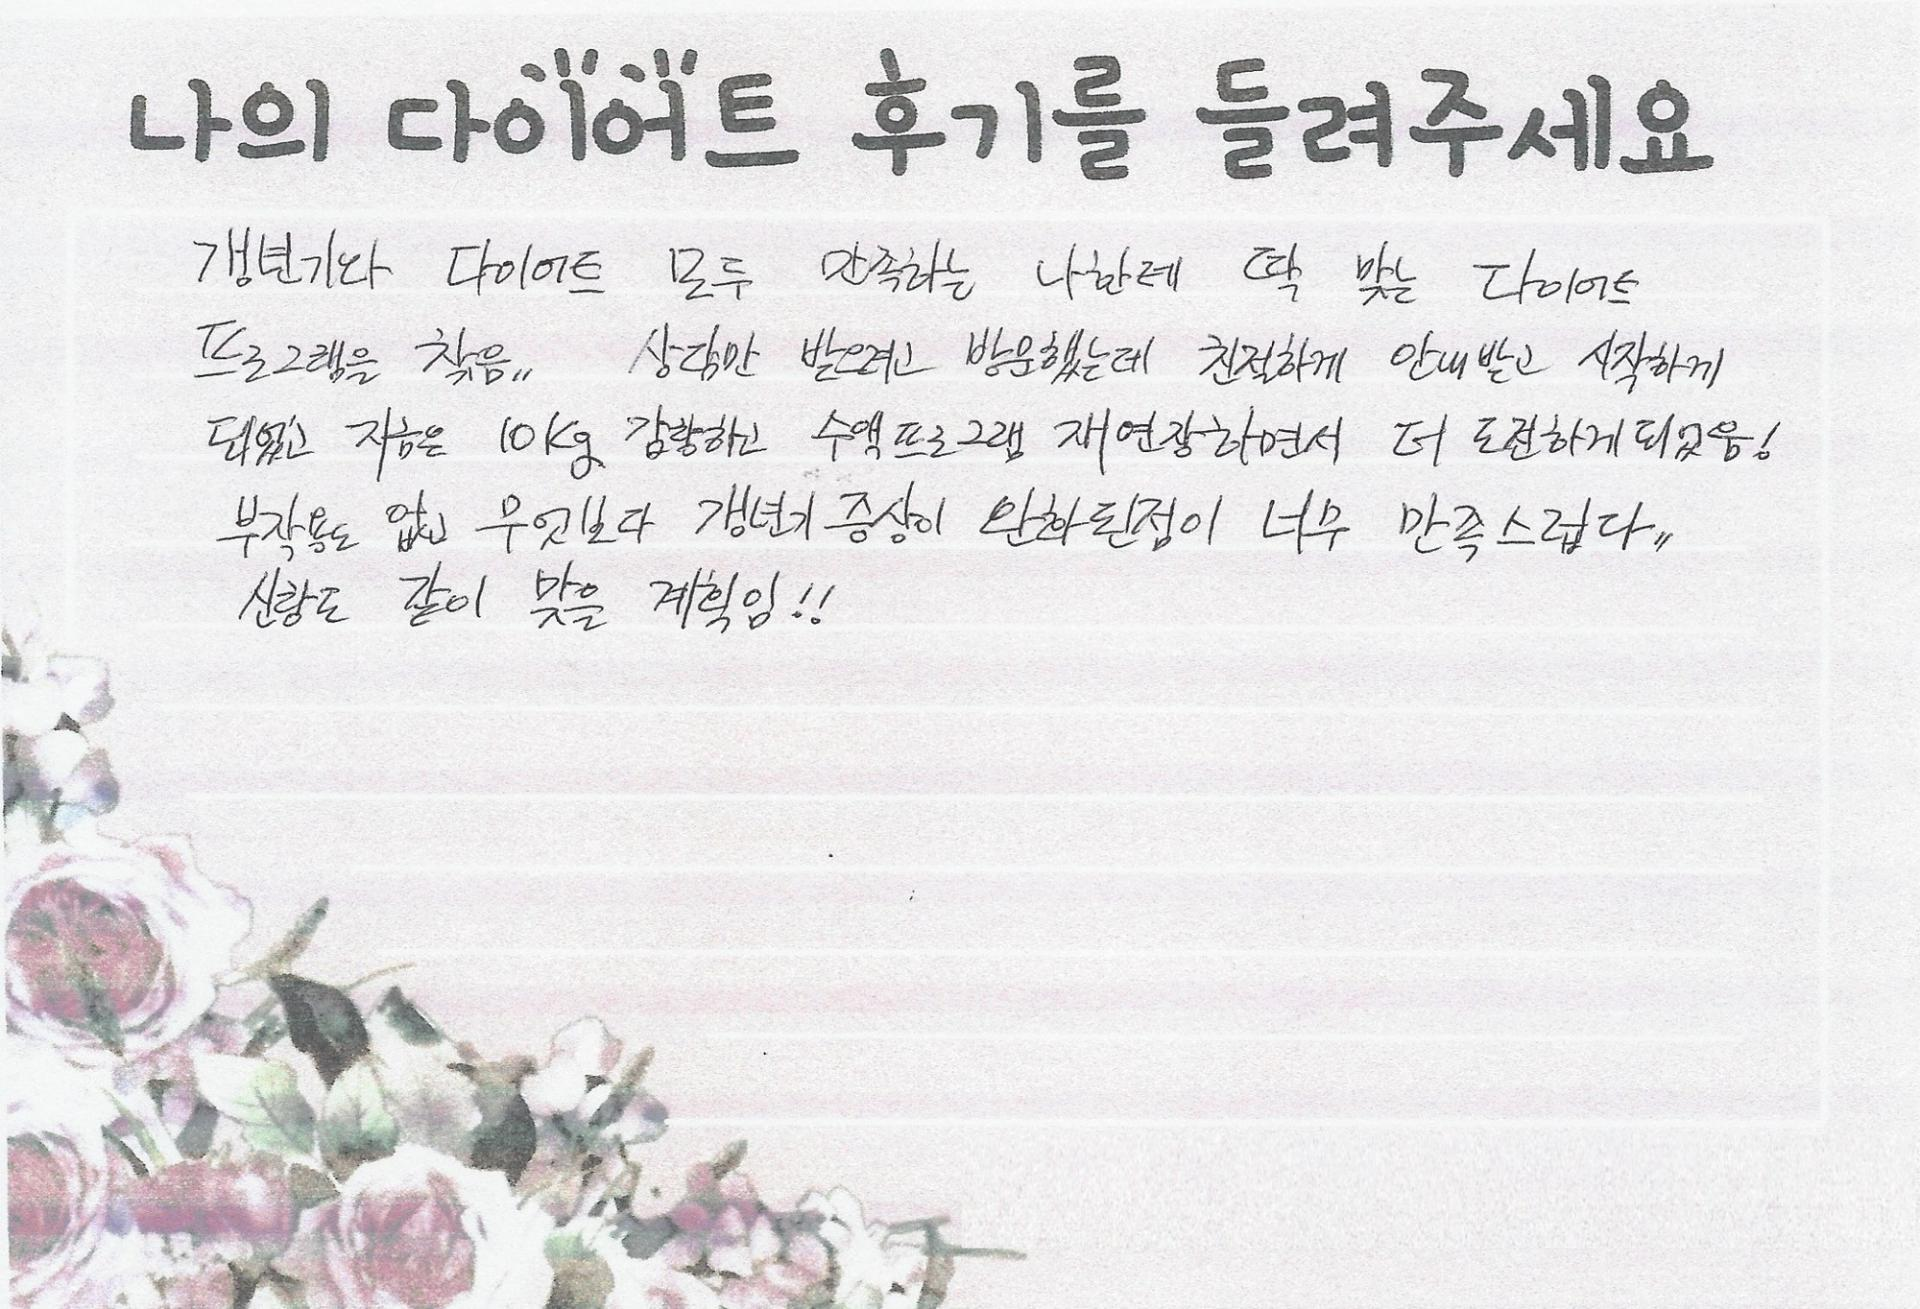 나의 다이어트 후기를 들려주세요
갱년기와 다이어트 모두 만족하는 나한테 딱 맞는 다이어트
프로그램을 찾음〃 상담만 받으려고 방문했는데 친절하게 안내받고 시작하게
되었고 지금은 10Kg 감량하고 수액프로그램 재연장하면서 더 도전하게되었음!
부작용도 없고 무엇보다 갱년기 증상이 완화된점이 너무 만족스럽다〃
신랑도 같이 맞을 계획임!!